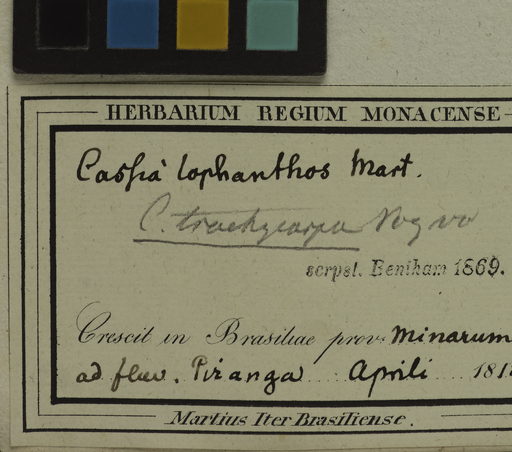 HERBARIUM REGIUM MONACENSE
Cassia lophanthos Mart.
C. trachycarpa Vog
scrpst. Bentham 1869.
Crescit in Brasiliae prov. Minarum
ad fluv. Piranga Aprili 181
Martius Iter Brasiliense.